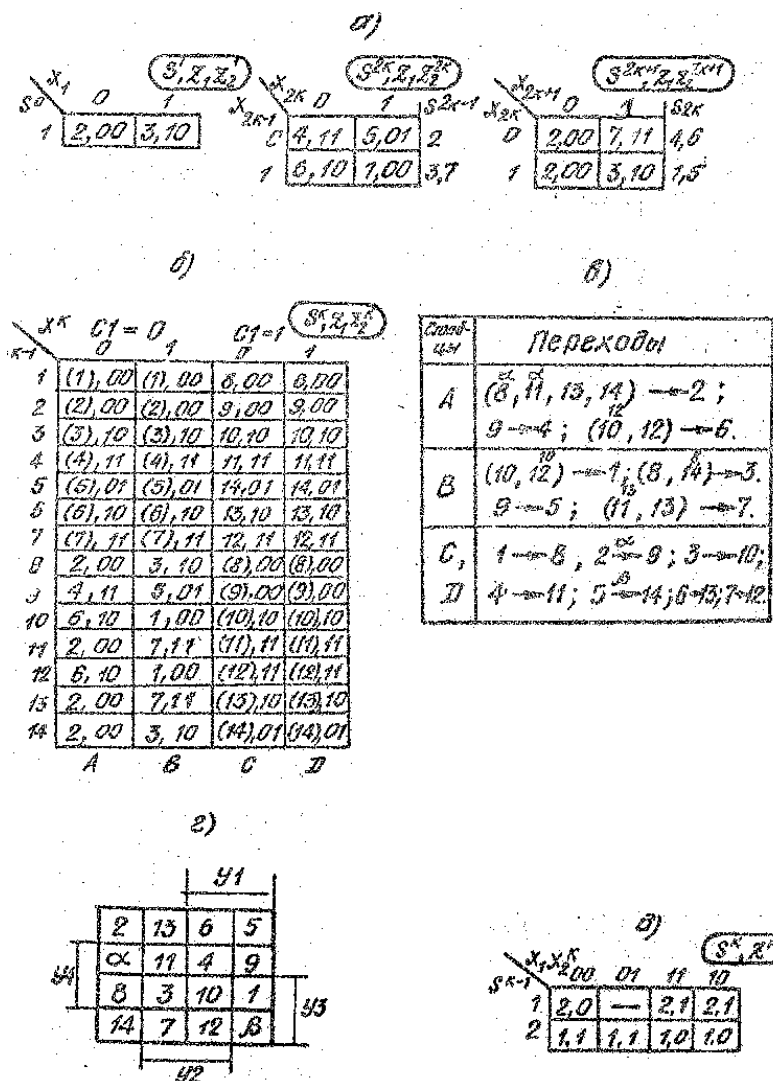 а)
X1 0 1 S¹,Z1Z2¹
S⁰
1 2,00 3,10
X2к 0 1 S²ᴷ,Z1Z2²ᴷ
X2к-1 S2к-1
0 4,11 5,01 2
1 6,10 1,00 3,7
X2к+1 0 1 S²ᴷ⁺¹,Z1Z2²ᴷ⁺¹
X2к S2к
0 2,00 7,11 4,6
1 2,00 3,10 1,5
б)
Xᴷ C1=0 C1=1 Sᴷ,Z1Z2ᴷ
к-1 0 1 0 1
1 (1),00 (1),00 8,00 8,00
2 (2),00 (2),00 9,00 9,00
3 (3),10 (3),10 10,10 10,10
4 (4),11 (4),11 11,11 11,11
5 (5),01 (5),01 14,01 14,01
6 (6),10 (6),10 13,10 13,10
7 (7),11 (7),11 12,11 12,11
8 2,00 3,10 (8),00 (8),00
9 4,11 5,01 (9),00 (9),00
10 6,10 1,00 (10),10 (10),10
11 2,00 7,11 (11),11 (11),11
12 6,10 1,00 (12),11 (12),11
13 2,00 7,11 (13),10 (13),10
14 2,00 3,10 (14),01 (14),01
A B C D
в)
Столб-цы Переходы
A (8, 11, 13, 14) → 2;
9→4; (10, 12) → 6.
B (10, 12) → 1; (8, 14) → 3.
9→5; (11, 13) → 7.
C, 1→8, 2→9; 3→10;
D 4→11; 5→14; 6→13; 7→12
г)
y1
2 13 6 5
α 11 4 9
y4
8 3 10 1
y3
14 7 12 β
y2
д)
X1X2ᴷ 00 01 11 10 Sᴷ, Zᴷ
Sᴷ⁻¹
1 2,0 — 2,1 2,1
2 1,1 1,1 1,0 1,0